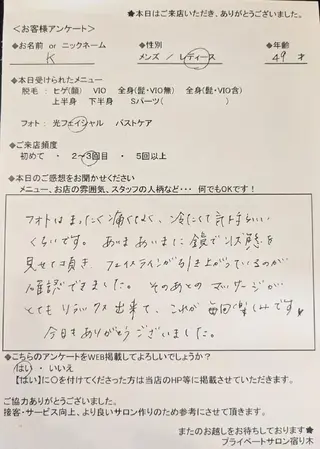 ★本日はご来店いただき、ありがとうございました。
＜お客様アンケート＞
◆お名前 or ニックネーム ◆性別 ◆年齢
K メンズ / レディース 49 才
◆本日受けられたメニュー
脱毛：ヒゲ(顔) VIO 全身(髭・VIO無) 全身(髭・VIO含)
上半身 下半身 Sパーツ( )
フォト：光フェイシャル バストケア
◆ご来店頻度
初めて ・ 2～3回目 ・ 5回以上
◆本日のご感想をお聞かせください
メニュー、お店の雰囲気、スタッフの人柄など･･･ 何でもOKです！
フォトはまったく痛くなく、冷たくて気持ちいい
くらいです。あいまあいまに鏡で状態を
見せて頂き、フェイスラインが引き上がっているのが
確認できました。そのあとのマッサージが
とてもリラックス出来て、これが毎回楽しみです。
今日もありがとうございました。
◆こちらのアンケートをWEB掲載してよろしいでしょうか？
はい ・ いいえ
【はい】に○を付けてくださった方は当店のHP等に掲載させていただきます。
ご協力ありがとうございました。
接客・サービス向上、より良いサロン作りのため参考にさせて頂きます。
またのお越しをお待ちしております★
プライベートサロン宿り木